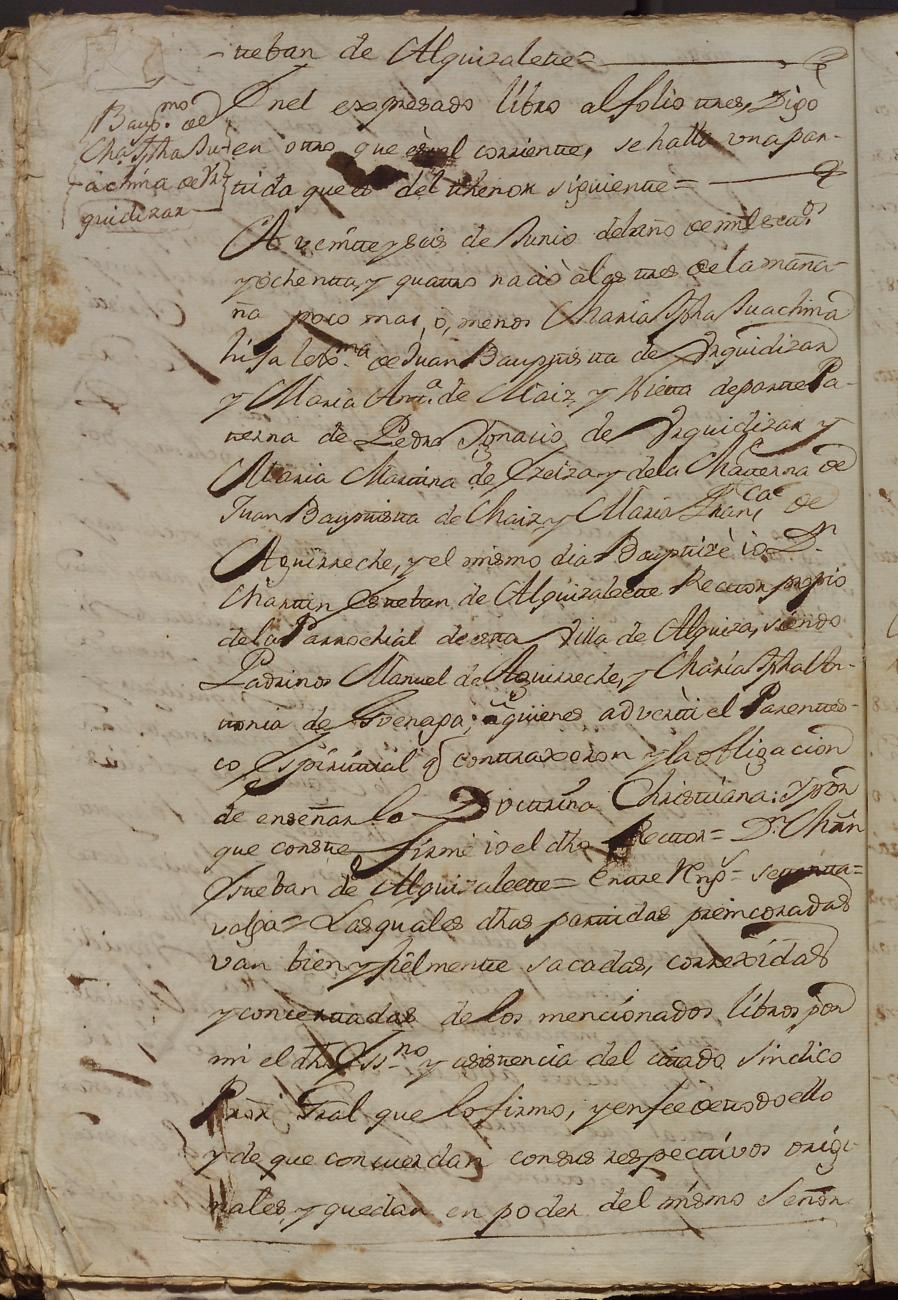 -teban de Alquizalete=
Bapmo. de
Ma. Jpha Ju-
achina de Yr-
quidizar
En el expresado libro al folio tres, Digo
en otro que es el corriente, se halla vna par-
tida que es del thenor siguiente=
A veinte y seis de Junio del año de mil
y ochenta, y quatro naciò alas tres de la maña-
ña poco mas, ò, menos Maria Jpha Juachina
hija letma. de Juan Bauptista de Yrquidizar
y Maria Anta. de Maiz y Nieta de parte Pa-
terna de Pedro Ygnacio de Yrquidizar y
Maria Martina de Ezeiza y de la Materna de
Juan Bauptista de Maiz y Maria Franca. de
Aguirreche, y el mismo dia Bauptizè io Dn.
Martin Esteban de Alquizalete Rector propio
de la Parrochial de esta Villa de Alquiza, siendo
Padrinos Manuel de Aguirreche, y Maria Jpha An-
tonia de Guenaga; a quienes adverti el Parentes-
co Spiritual q contraxeron y la obligacion
de enseñar la Doctrina Christiana: Y por
que conste firmè io el dho Rector= Dn. Mrn
Esteban de Alquizalete= Entre Rengs= setenta=
valga= Las quales dhas partidas preincoradas
van bien y fielmente sacadas, correxidas
y concertadas de los mencionados libros por
mi el dho Essno. y asistencia del citado sindico
Pror. Gral que lo firmo, y en fee de todo ello
y de que concuerdan con sus respectivos origi-
nales, y quedan en poder del mismo Señor